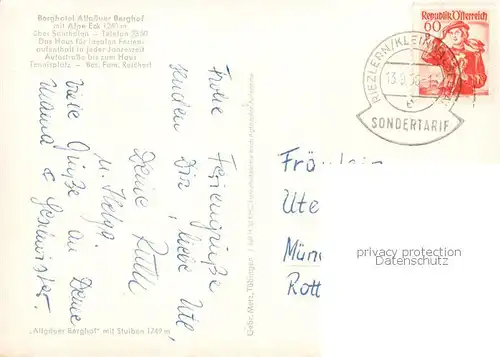 Berghotel Allgäuer Berghof
mit Alpe Eck 1260 m
über Sonthofen - Telefon
Das Haus für idealen Ferien-
aufenthalt in jeder Jahreszeit
Autostraße bis zum Haus
Tennisplatz - Bes. Fam. Reichert
Frohe Feriengrüße
senden Dir, liebe Ute,
Deine Ruth
u. Helga.
Viele Grüße an Deine
Mama & Geschwister.
„Allgäuer Berghof" mit Stuiben 1749 m
Gebr. Metz, Tübingen
60
Republik Österreich
RIEZLERN/KLEINW
SONDERTARIF
Fräulein
Ute
Mün
Rott
privacy protection
Datenschutz